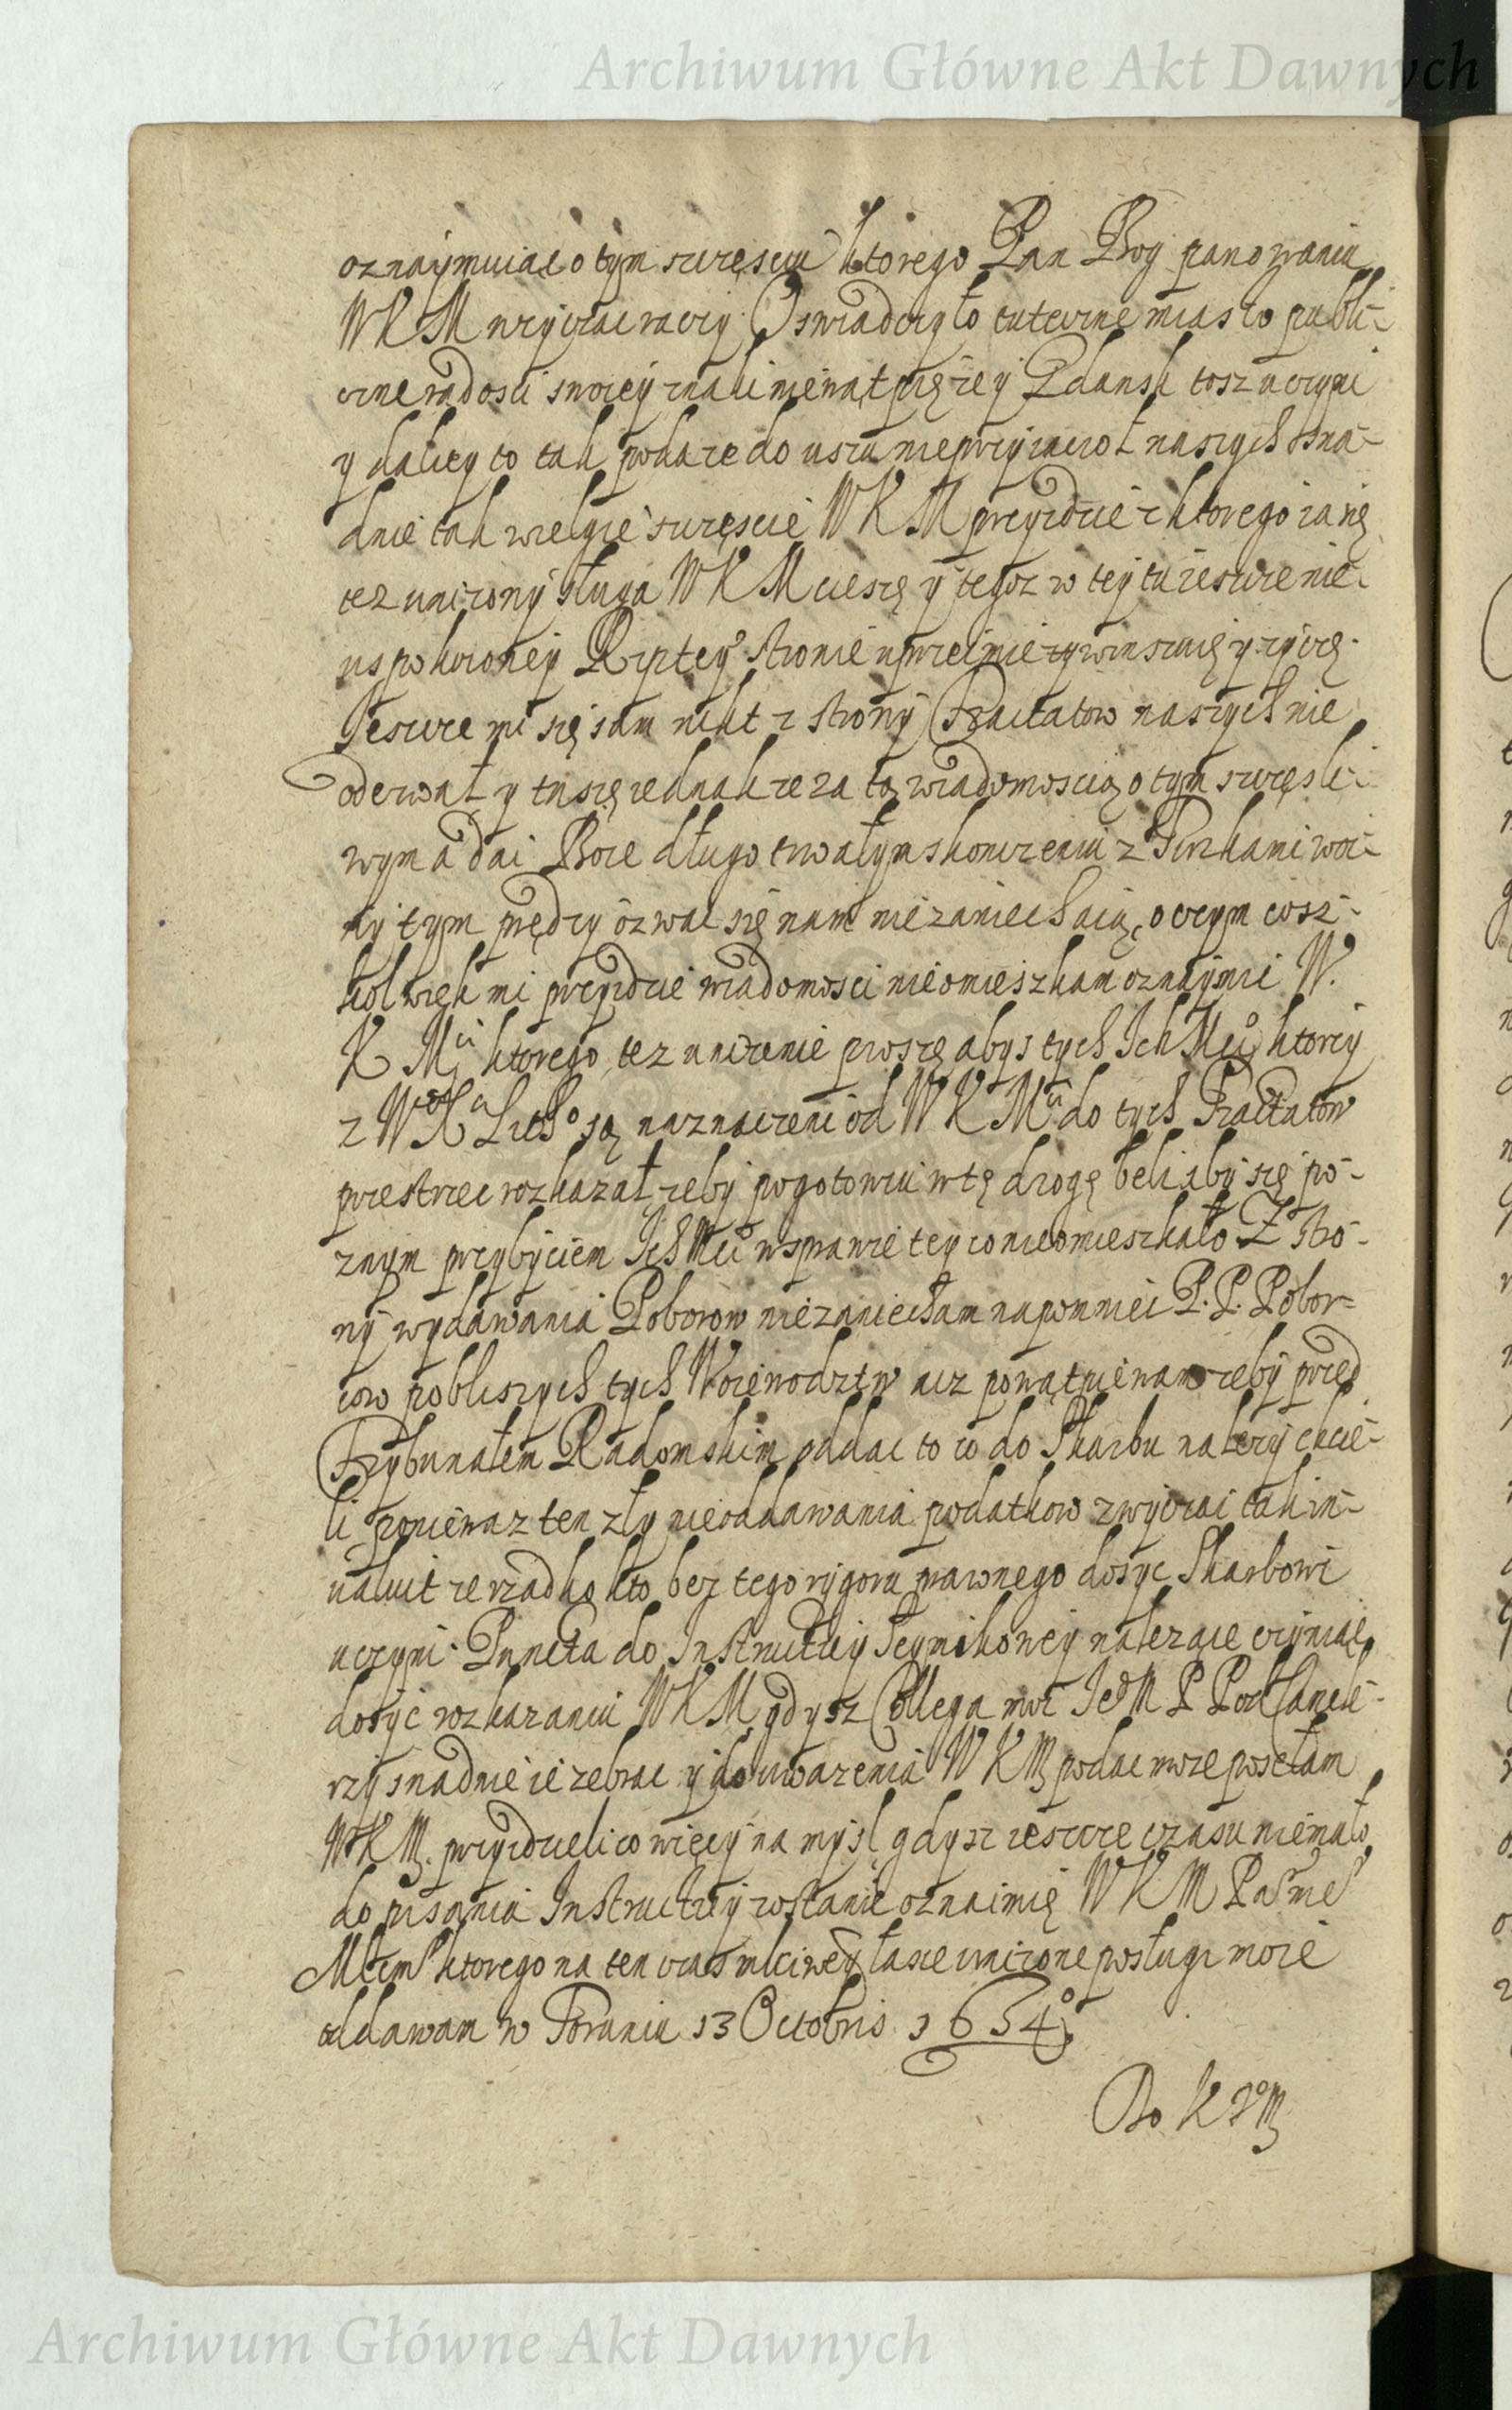 Archiwum Główne Akt Dawnych
oznaymuiąc o tym szczęsciu ktorego Pan Bog panowaniu
WKM uzyczac raczy. Oswiadczyło tuteczne miasto publi-
czne radosci swoiey znaki niewątpię ze y Gdansk tosz uczyni
y daliey to tak podaze do uszu nieprzyiacioł naszych sna-
dnie tak wielgie szczęscie WKM przyidzie z ktorego ia się
tez unizony sługa WKM cieszę y tegoz w tey tu ieszcze nie-
uspokoioney Rzptey stronie uprzeimie zywinszuię y zyczę.
Jeszcze mi się sam nikt z strony Tractatow naszych nie
oderwał y tuszę iednak ze za tą wiadomoscią o tym szczęsli-
wym a dai Boze długo trwałym skonczeniu z Turkami woi-
ny tym prędzy ozwac się nam nie zaniechaią, o czym cosz-
kolwiek mi przyidzie wiadomosci nieomieszkam oznaymic W.
K Mci ktorego tez unizenie proszę abys tych Ich Mciow ktorzy
z WXa Litho są naznaczeni od WKMci do tych Tractatow
przestrzec rozkazał zeby pogotowiu w tę drogę beli aby się po-
znym przybyciem Ich Mciow w sprawie tey co nie omieszkało. Z stro-
ny wydawania Poborow nie zaniecham napomniec P. P. Pobor-
cow pobliszych tych Woiewodztw acz powątpiewam zeby przed
Trybunałem Radomskim oddac to co do Skarbu nalezy chcie-
li poniewaz ten zły nieoddawania podatkow zwyczai tak in-
ualuit ze rzadko kto bez tego rygoru prawnego dosyc Skarbowi
uczyni. Puncta do Instructiey Seymikowey nalezące czyniąc
dosyc rozkazaniu WKM gdysz Collega moi Je° M P Podkancle-
rzy snadnie ie zebrac y do uwazenia WKM podac moze posełam
WKM. przyidzieli co więcy na mysl gdysz ieszcze czasu niemało
do pisania Instructiey zostanie oznaimię WKM Panu me°
Młcm° ktorego na ten czas młciwey łasce unizone posługi moie
oddawam w Toruniu 13 Octobris 1634°.
Do K J° M
Archiwum Główne Akt Dawnych